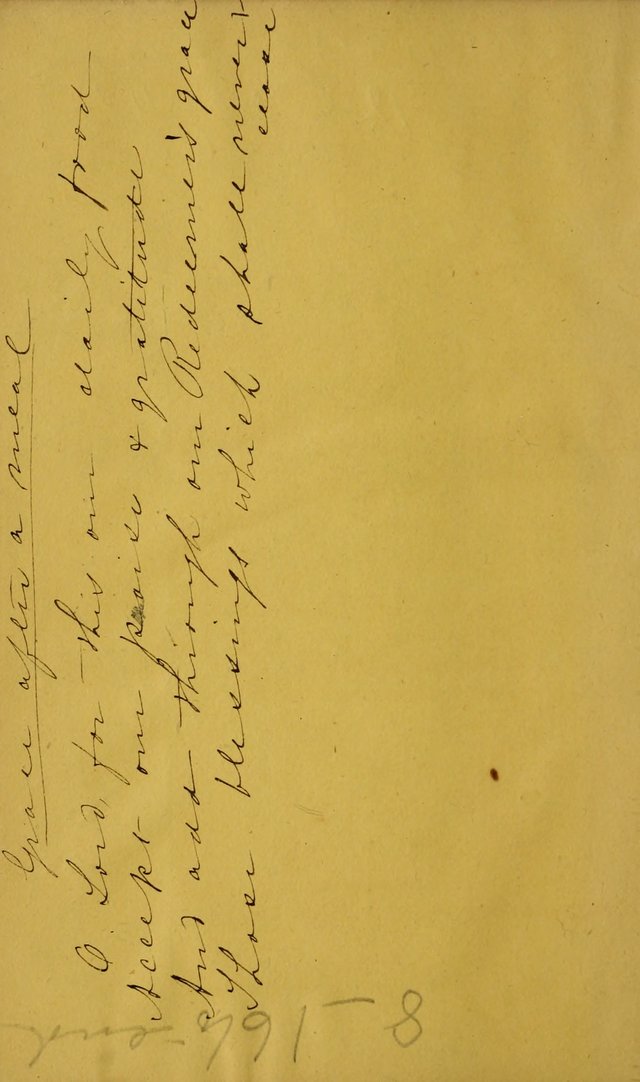 Grace after a meal
O. Lord, for this our daily food
Accept our praise & gratitude
And add through our Redeemer's grace
Those blessings which shall never
cease
8-16